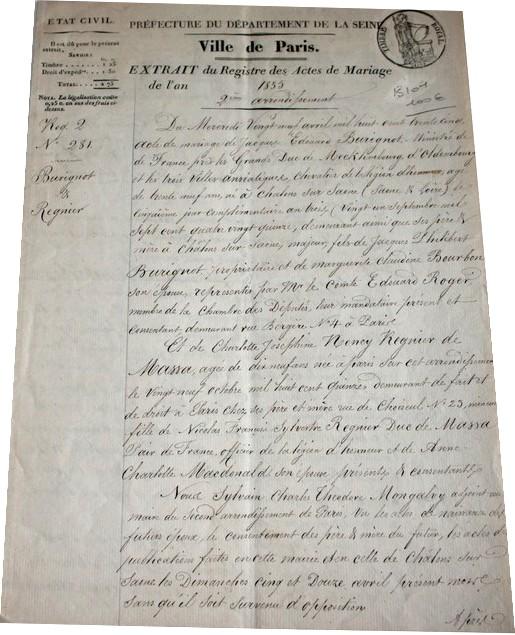 ETAT CIVIL.
Il est dû pour le présent
extrait,
SAVOIR:
Timbre
Droit d'expéd.on
TOTAL
NOTA. La légalisation coûte
0,25 c. en sus des frais ci-
dessus.
Reg. 2
N.° 281.
Burignot
&
Regnier
PRÉFECTURE DU DÉPARTEMENT DE LA SEINE
TIMBRE ROYAL
Ville de Paris.
EXTRAIT du Registre des Actes de Mariage
de l'an 1835
2ème arrondissement
Du Mercredi Vingt neuf avril mil huit cent trente cinq
acte de mariage de Jacques Edouard Burignot, Ministre de
de France près les Grands Duc de Mecklembourg d'Oldembourg
et les trois Villes anséatiques, chevalier de la légion d'honneur, agé
de trente neuf ans, né à Chalons sur Saone (Saone & Loire) le
cinquième jour complémentaire an trois (Vingt un Septembre mil
Sept cent quatre vingt quinze, demeurant ainsi que ses père &
mère à Chalons sur Saone, majeur, fils de Jacques Philibert
Burignot, propriétaire et de marguerite Claudine Bourbon
son épouse, representés par Mr. le Comte Edouard Roger
membre de la Chambre des Députés, leur mandataire présent et
consentant, demeurant rue Bergère N.° 4 à Paris
Et de Charlotte Joséphine Nency Regnier de
Massa, agée de dix neuf ans née à paris sur cet arrondissement
le Vingt neuf octobre mil huit cent quinze demeurant de fait et
de droit à Paris chez ses père et mère rue de Choiseul N.° 23, mineure
fille de Nicolas François Sylvestre Regnier Duc de Massa
Pair de France, officier de la légion d'honneur et de Anne
Charlotte Macdonald son épouse présents & consentants
Nous Sylvain Charles Théodore Mongalvy adjoint au
maire du Second arrondissement de Paris, Vu les actes de naissance des
futurs époux, le consentement des père & mère du futur, les actes de
publications faites en cette mairie et en celle de Chalons sur
Saone les Dimanches cinq et Douze avril présent mois
Sans qu'il soit survenu d'opposition
Après